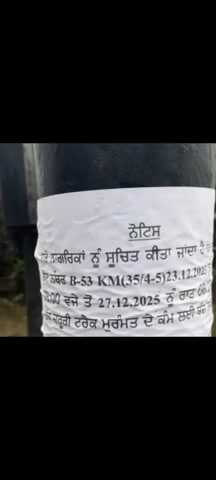 ਨੋਟਿਸ
ਨਾਗਰਿਕਾਂ ਨੂੰ ਸੂਚਿਤ ਕੀਤਾ ਜਾਂਦਾ ਹੈ
ਨੰਬਰ B-53 KM(35/4-5)23.12.2025
ਵਜੇ ਤੋਂ 27.12.2025 ਨੂੰ ਰਾਤ
ਜ਼ਰੂਰੀ ਟਰੈਕ ਮੁਰੰਮਤ ਦੇ ਕੰਮ ਲਈ ਬੰਦ